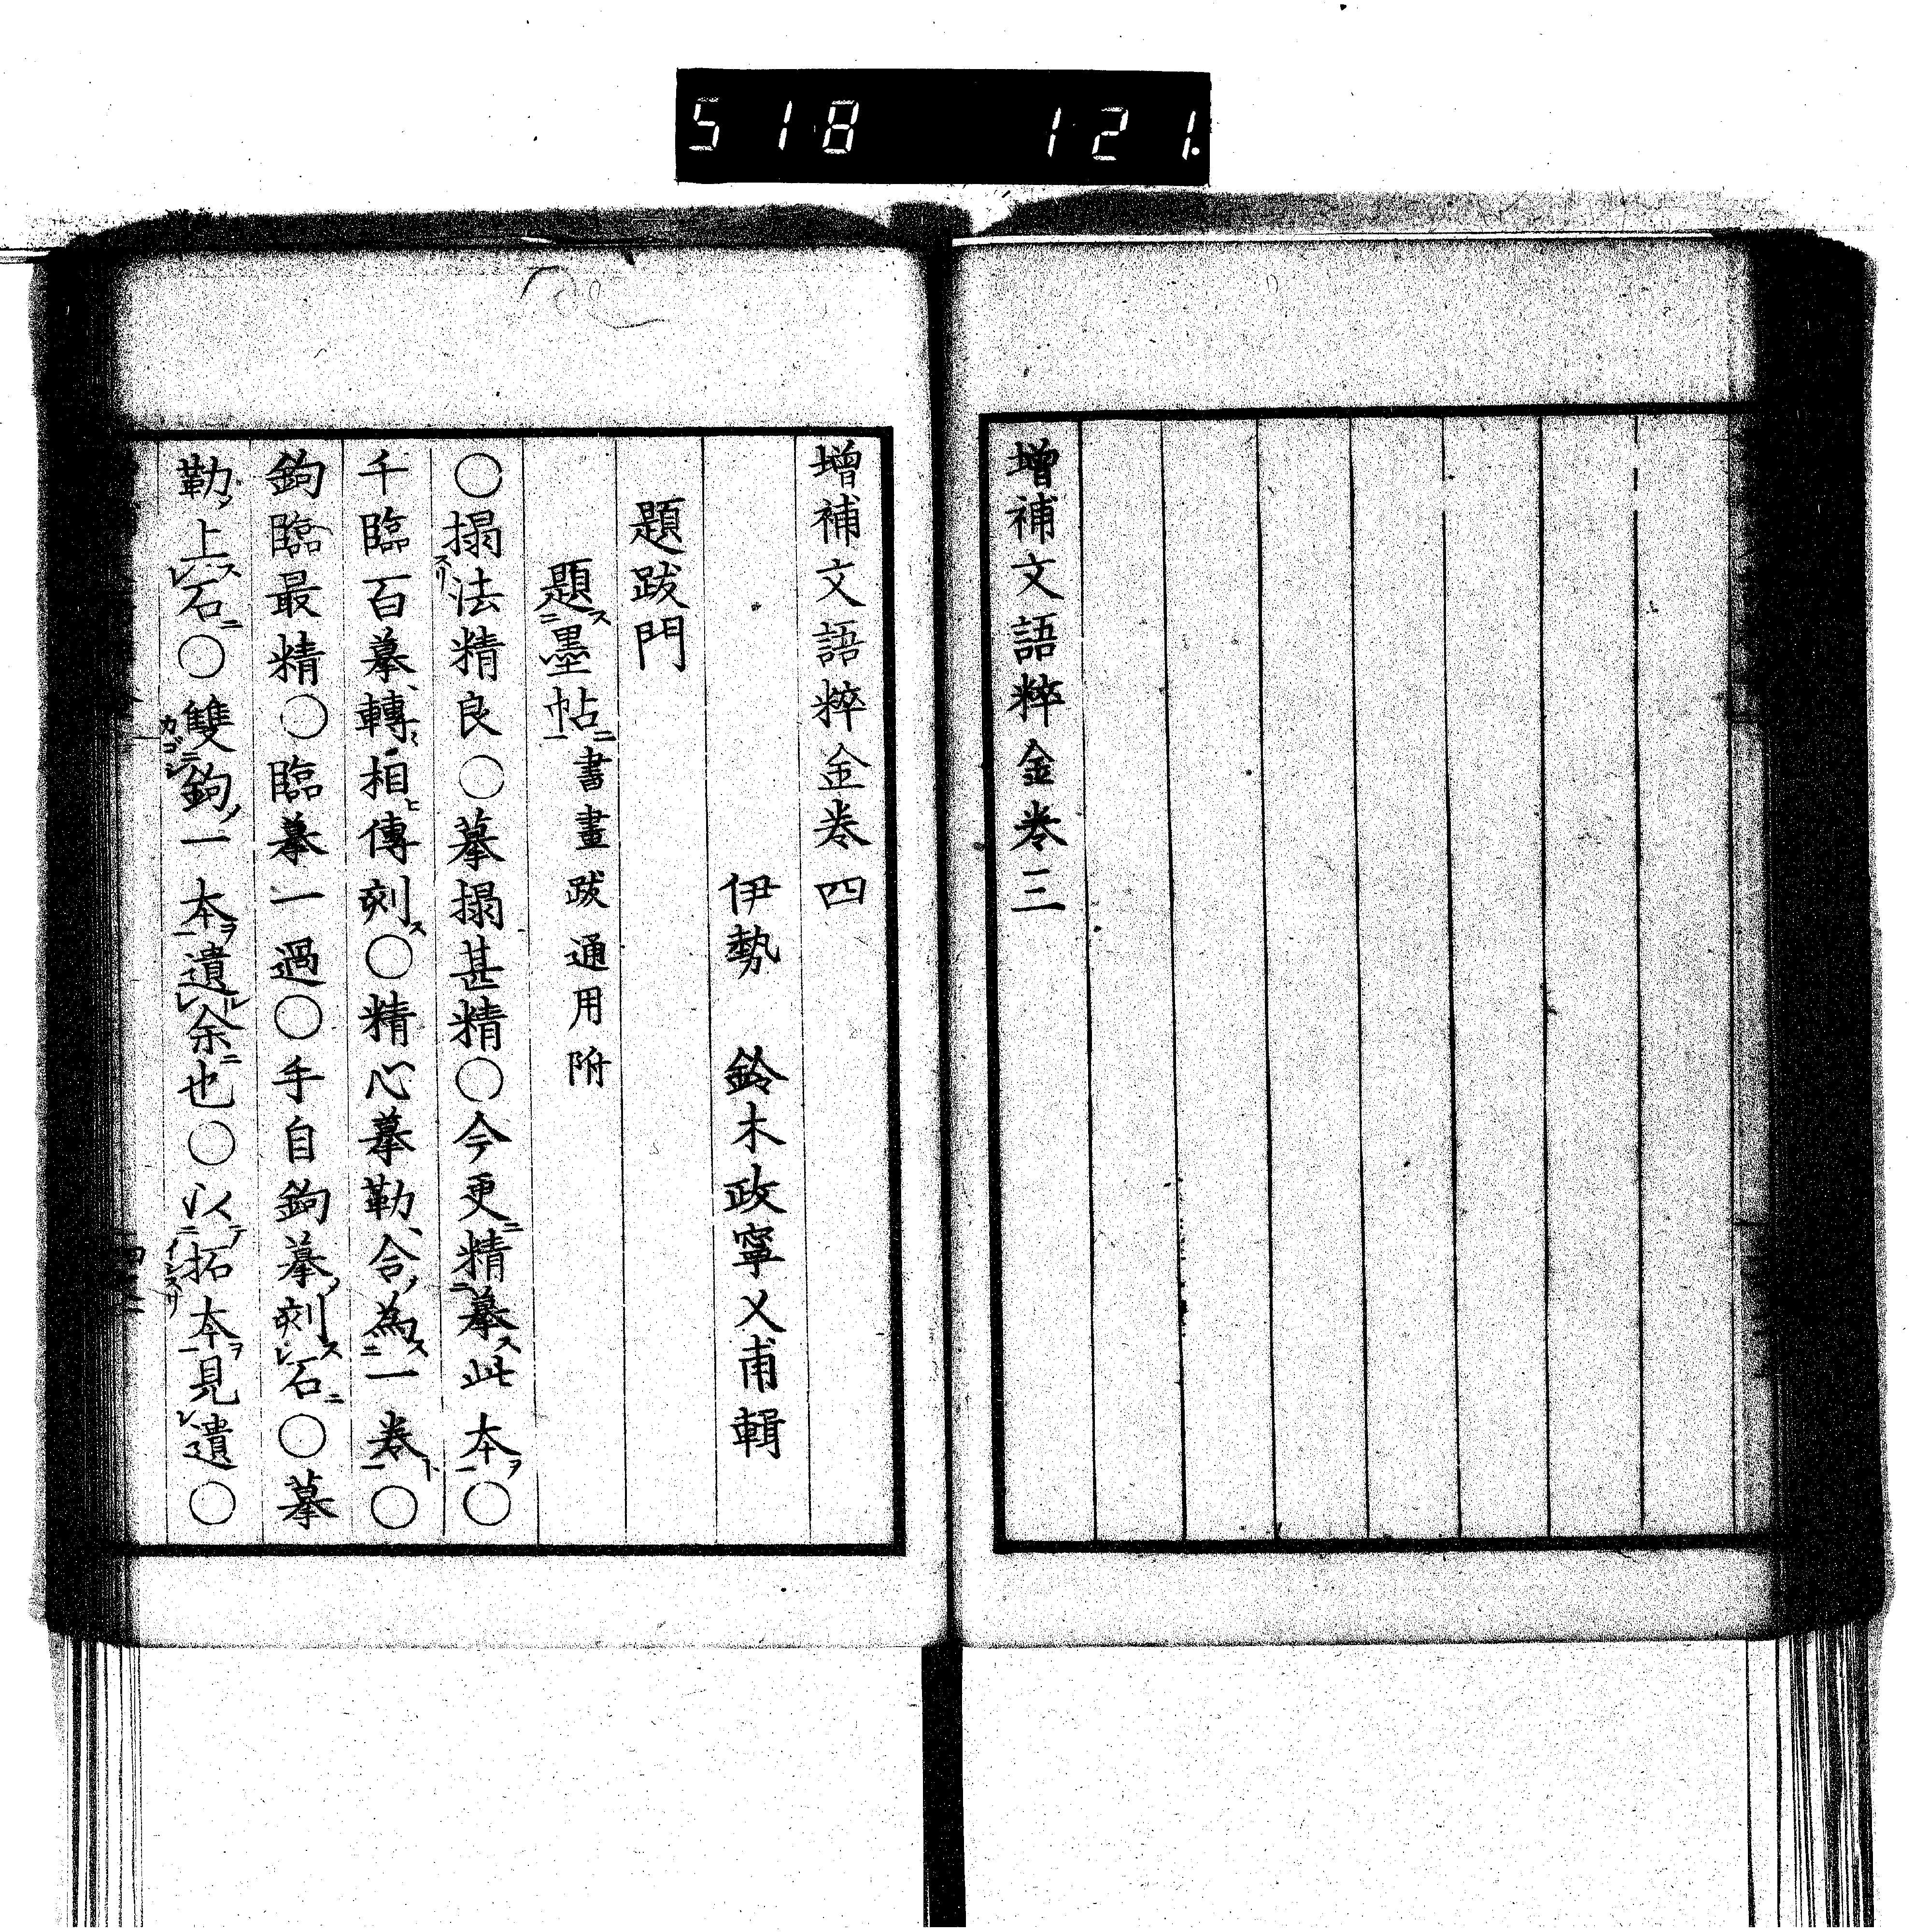 518 121.
增補文語粹金卷三
增補文語粹金卷四
伊勢 鈴木政寧乂甫輯
題跋門
題墨帖書畫跋通用附
○搨法精良○摹搨甚精○今更精摹此本○
千臨百摹轉相傳刻○精心摹勒合為一卷○
鉤臨最精○臨摹一過○手自鉤摹刻石○摹
勒上石○雙鉤一本遺余也○以拓本見遺○